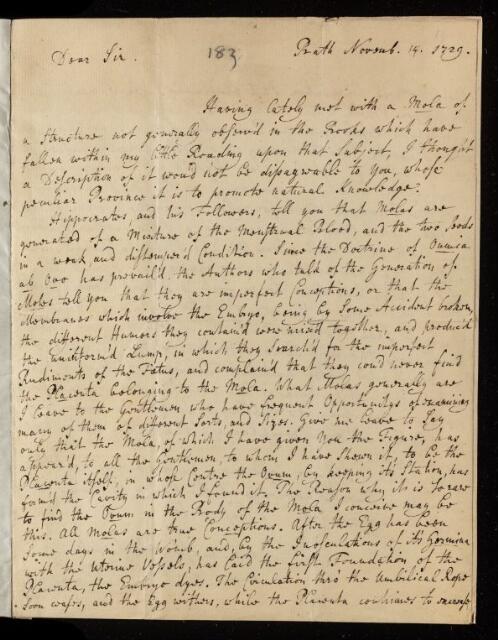 Dear Sir.
183
Bath Novemb. 14. 1729.
Having lately met with a Mola of
a Structure not generally observ'd in the Books which have
fallen within my little Reading upon that Subject, I thought
a Description of it would not be disagreeable to You, whose
peculiar Province it is to promote natural Knowledge.
Hippocrates, and his Followers, tell you that Molas are
generated of a Mixture of the Menstrual Blood, and the two Seeds
in a weak and distemper'd Condition. Since the Doctrine of Omnia
ab Ovo has prevail'd, the Authors who talk of the Generation of
Moles tell you that they are imperfect Conceptions, or that the
Membranes which involve the Embryo, being by some Accident broken,
the different Humors they contain'd were mixed together, and produc'd
the uniform'd Lump, in which they search'd for the imperfect
Rudiments of the Fœtus, and complain'd that they coud never find
the Placenta belonging to the Mola. What Molas generally are
I leave to the Gentlemen who have frequent Opportunitys of examining
many of them of different Sorts, and Sizes. Give me leave to say
only that the Mola, of which I have given You the Figure, has
appear'd, to all the Gentlemen, to whom I have shown it, to be the
Placenta itself, in whose Centre the Ovum, by keeping its Station, has
form'd the Cavity in which I found it. The Reason why it is so rare
to find the Ovum in the Body of the Mola I conceive may be
this. All Molas are true Conceptions. After the Egg has been
some days in the Womb, and by the Inosculations of its
with the Uterine Vessels, has laid the first Foundation of the
Placenta, the Embryo dyes. The Circulation thro the Umbilical Rope
soon ceases, and the Egg withers, while the Placenta continues to encrease